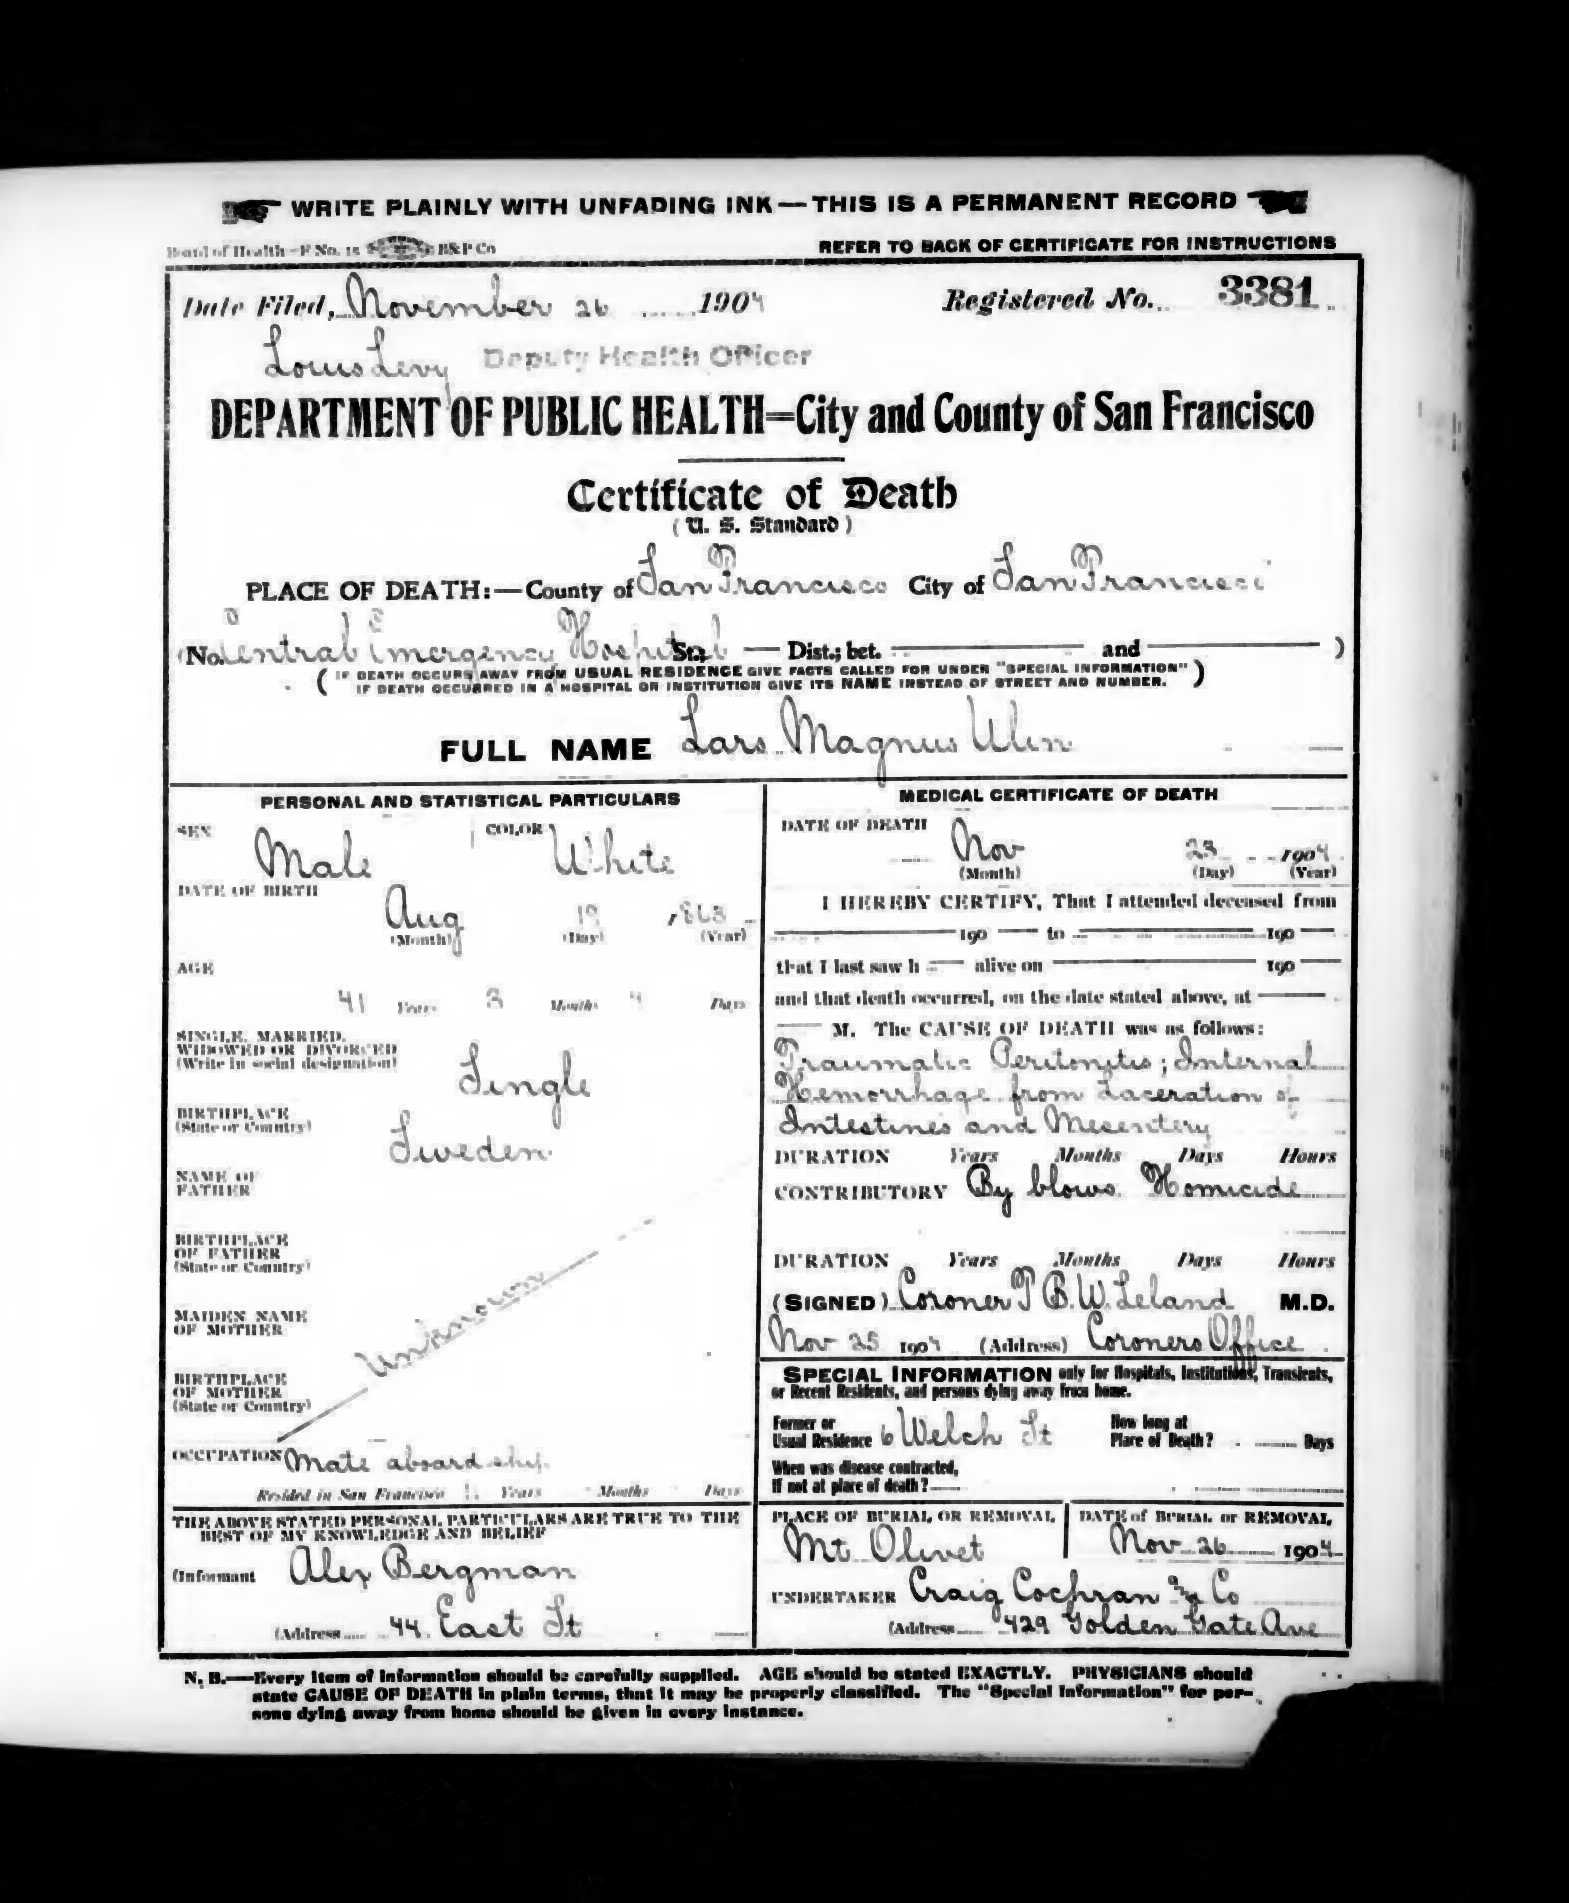 WRITE PLAINLY WITH UNFADING INK — THIS IS A PERMANENT RECORD
Board of Health—F No. 15 B&P Co REFER TO BACK OF CERTIFICATE FOR INSTRUCTIONS
Date Filed, November 26 1904 Registered No. 3381
Louis Levy Deputy Health Officer
DEPARTMENT OF PUBLIC HEALTH=City and County of San Francisco
Certificate of Death
(U. S. Standard)
PLACE OF DEATH:—County of San Francisco City of San Francisco
(No. Central Emergency Hospital St.; — Dist.; bet. — and — )
(IF DEATH OCCURS AWAY FROM USUAL RESIDENCE GIVE FACTS CALLED FOR UNDER "SPECIAL INFORMATION"
IF DEATH OCCURRED IN A HOSPITAL OR INSTITUTION GIVE ITS NAME INSTEAD OF STREET AND NUMBER.)
FULL NAME Lars Magnus Ulin
PERSONAL AND STATISTICAL PARTICULARS
SEX Male COLOR White
DATE OF BIRTH
Aug 19 1863
(Month) (Day) (Year)
AGE
41 Years 3 Months 4 Days
SINGLE, MARRIED,
WIDOWED OR DIVORCED
(Write in social designation) Single
BIRTHPLACE
(State or Country) Sweden
NAME OF
FATHER
BIRTHPLACE
OF FATHER
(State or Country)
Unknown
MAIDEN NAME
OF MOTHER
BIRTHPLACE
OF MOTHER
(State or Country)
OCCUPATION Mate aboard ship
Resided in San Francisco Years Months Days
THE ABOVE STATED PERSONAL PARTICULARS ARE TRUE TO THE
BEST OF MY KNOWLEDGE AND BELIEF
(Informant Alex Bergman
(Address 44 East St
MEDICAL CERTIFICATE OF DEATH
DATE OF DEATH
Nov 23 1904
(Month) (Day) (Year)
I HEREBY CERTIFY, That I attended deceased from
— 190 — to — 190 —
that I last saw h — alive on — 190 —
and that death occurred, on the date stated above, at —
— M. The CAUSE OF DEATH was as follows:
Traumatic Peritonitis; Internal
Hemorrhage from Laceration of
Intestines and Mesentery
DURATION Years Months Days Hours
CONTRIBUTORY By blows. Homicide
DURATION Years Months Days Hours
(SIGNED) Coroner T B.W. Leland M.D.
Nov 25 1904 (Address) Coroners Office
SPECIAL INFORMATION only for Hospitals, Institutions, Transients,
or Recent Residents, and persons dying away from home.
Former or
Usual Residence 6 Welch St
How long at
Place of Death? Days
When was disease contracted,
If not at place of death? —
PLACE OF BURIAL OR REMOVAL
Mt Olivet
DATE of BURIAL or REMOVAL
Nov 26 1904
UNDERTAKER Craig Cochran & Co
(Address 429 Golden Gate Ave
N. B.—Every item of information should be carefully supplied. AGE should be stated EXACTLY. PHYSICIANS should
state CAUSE OF DEATH in plain terms, that it may be properly classified. The "Special Information" for per-
sons dying away from home should be given in every instance.